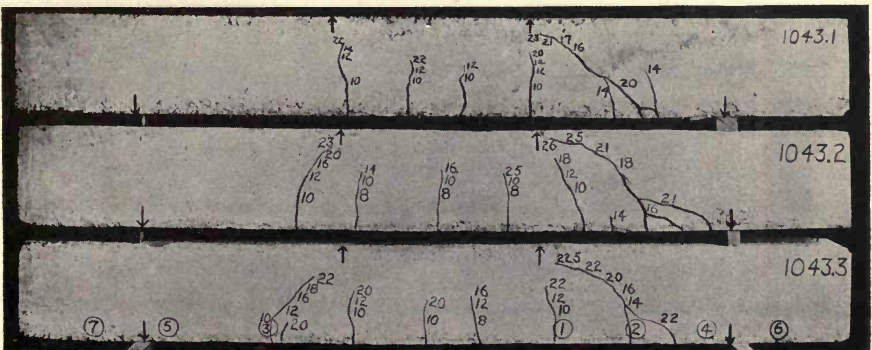 1043.1
22 14 12 10
22 12 10
12 10
23 20 12 12 10
21 17 16 20 14
14
1043.2
23 20 16 12 10
14 10 8
16 10 8
25 10 8
26 18 12 10
25 21 18 16 21
14
1043.3
22 18 16 12 10 20
20 12 10
20 10
16 12 8
22 12 10
22.5 22 20 16 14 22
⑦ ⑤ ③ ① ② ④ ⑥